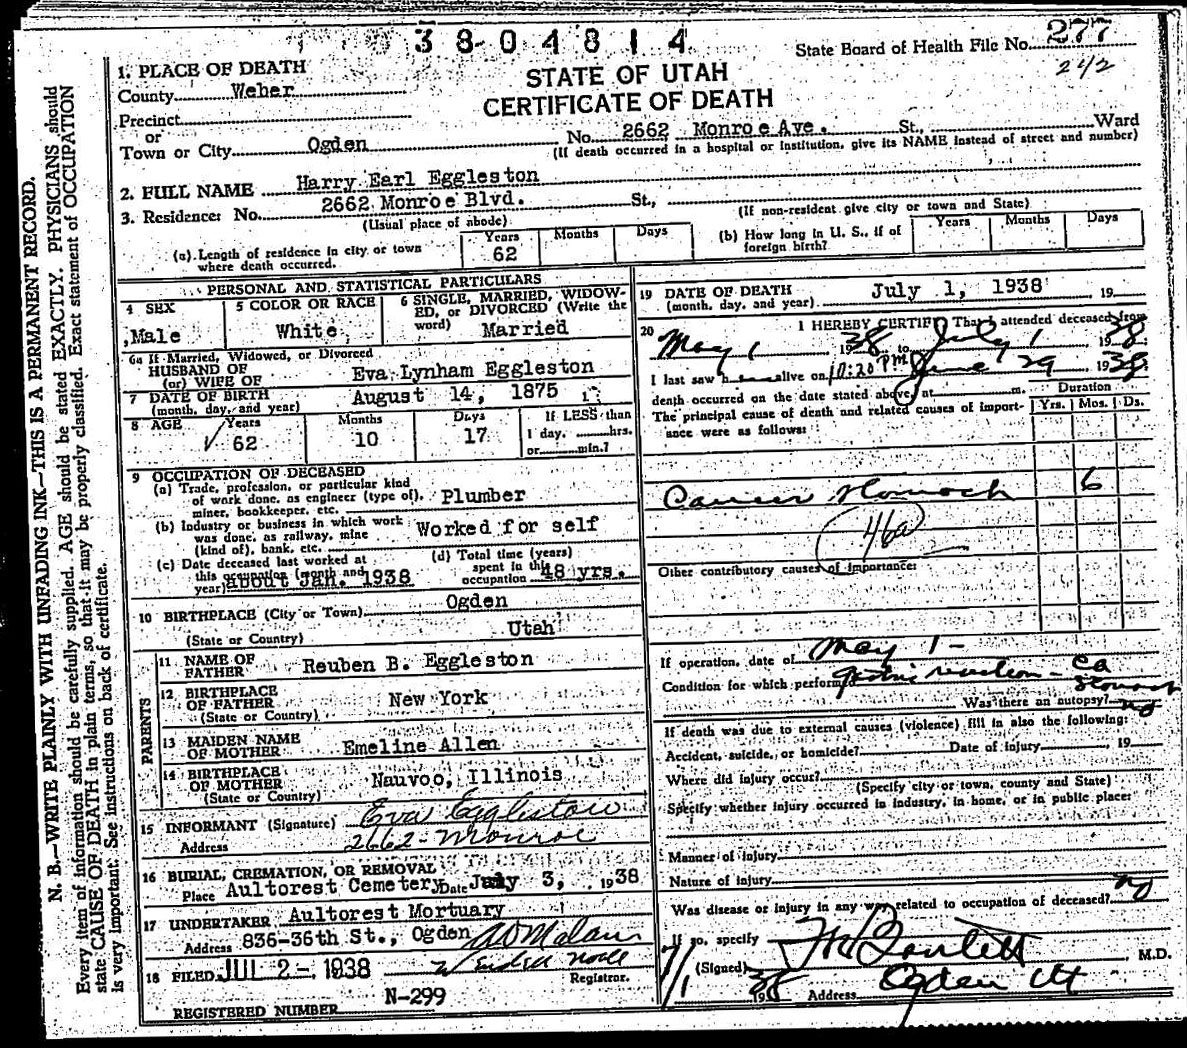 3804814
State Board of Health File No. 277
242
STATE OF UTAH
CERTIFICATE OF DEATH
1. PLACE OF DEATH
County Weber
Precinct
or
Town or City Ogden No. 2662 Monroe Ave. St., Ward
(If death occurred in a hospital or institution, give its NAME instead of street and number)
2. FULL NAME Harry Earl Eggleston
3. Residence: No. 2662 Monroe Blvd. St.,
(Usual place of abode) (If non-resident give city or town and State)
(a) Length of residence in city or town where death occurred. Years 62 Months Days
(b) How long in U. S., if of foreign birth? Years Months Days
PERSONAL AND STATISTICAL PARTICULARS
4 SEX Male
5 COLOR OR RACE White
6 SINGLE, MARRIED, WIDOWED, or DIVORCED (Write the word) Married
6a If Married, Widowed, or Divorced
HUSBAND OF
(or) WIFE OF Eva Lynham Eggleston
7 DATE OF BIRTH
(month, day, and year) August 14, 1875
8 AGE Years 62 Months 10 Days 17 If LESS than
1 day, hrs.
or min.?
9 OCCUPATION OF DECEASED
(a) Trade, profession, or particular kind
of work done, as engineer (type of),
miner, bookkeeper, etc. Plumber
(b) Industry or business in which work
was done, as railway, mine
(kind of), bank, etc. Worked for self
(c) Date deceased last worked at
this occupation (month and
year) about Jan. 1938
(d) Total time (years)
spent in this
occupation 48 yrs.
10 BIRTHPLACE (City or Town) Ogden
(State or Country) Utah
PARENTS
11 NAME OF
FATHER Reuben B. Eggleston
12 BIRTHPLACE
OF FATHER New York
(State or Country)
13 MAIDEN NAME
OF MOTHER Emeline Allen
14 BIRTHPLACE
OF MOTHER Nauvoo, Illinois
(State or Country)
15 INFORMANT (Signature) Eva Eggleston
Address 2662 - Monroe
16 BURIAL, CREMATION, OR REMOVAL
Place Aultorest Cemetery Date July 3, 1938
17 UNDERTAKER Aultorest Mortuary
Address 836-36th St., Ogden
18 FILED JUL 2-, 1938
Registrar.
N-299
REGISTERED NUMBER
19 DATE OF DEATH
(month, day, and year) July 1, 1938 19
20 I HEREBY CERTIFY That I attended deceased from
May 1 1938 to July 1 1938
I last saw h alive on June 29 1938
death occurred on the date stated above, at 10:20 PM m.
The principal cause of death and related causes of importance were as follows:
Duration
Yrs. Mos. Ds.
Cancer stomach 6
46a
Other contributory causes of importance:
If operation, date of May 1 -
Condition for which performed gastric resection - Ca stomach
Was there an autopsy? no
If death was due to external causes (violence) fill in also the following:
Accident, suicide, or homicide? Date of injury 19
Where did injury occur?
(Specify city or town, county and State)
Specify whether injury occurred in industry, in home, or in public place:
Manner of injury
Nature of injury
Was disease or injury in any way related to occupation of deceased? no
If so, specify
(Signed) M.D.
7/1 1938 Address Ogden Ut
N. B.—WRITE PLAINLY WITH UNFADING INK—THIS IS A PERMANENT RECORD.
Every item of information should be carefully supplied. AGE should be stated EXACTLY. PHYSICIANS should
state CAUSE OF DEATH in plain terms, so that it may be properly classified. Exact statement of OCCUPATION
is very important. See instructions on back of certificate.